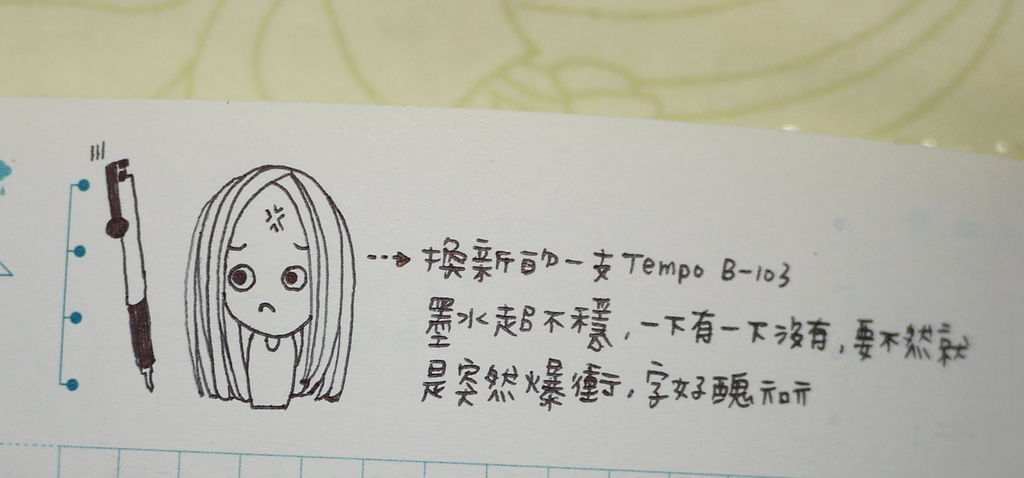 換新的一支Tempo B-103
墨水超不穩,一下有一下沒有,要不然就
是突然爆衝,字好醜ㄦㄛㄦ